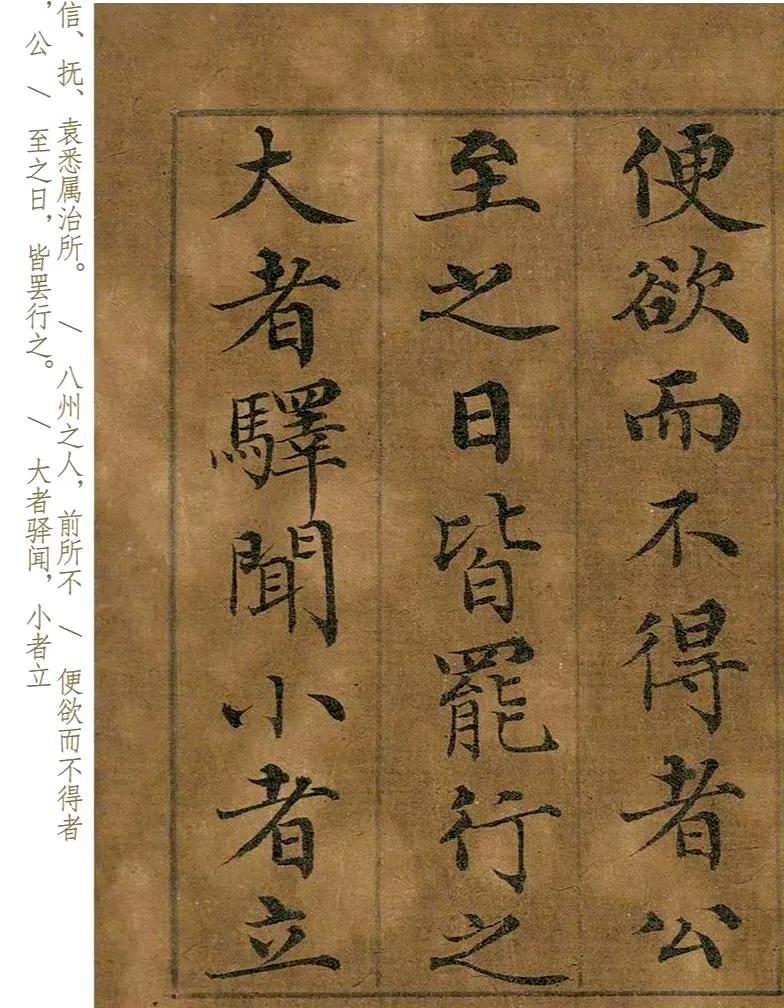 便欲而不得者公
至之日皆罷行之
大者驛聞小者立
信、抚、袁悉属治所。 \ 八州之人，前所不 \ 便欲而不得者
，公 \ 至之日，皆罢行之。 \ 大者驿闻，小者立